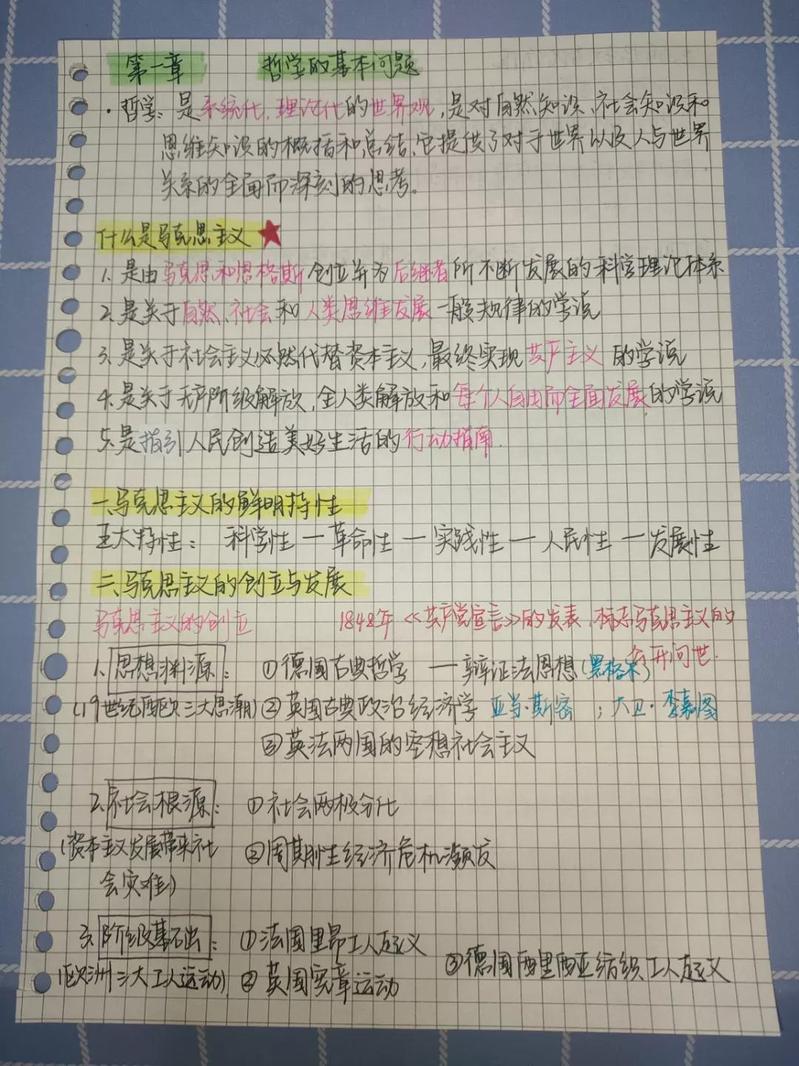 第一章 哲学的基本问题
·哲学:是系统化,理论化的世界观,是对自然知识、社会知识和
思维知识的概括和总结,它提供了对于世界以及人与世界
关系的全面而深刻的思考。
什么是马克思主义
1.是由马克思和恩格斯创立并为后继者所不断发展的科学理论体系
2.是关于自然、社会和人类思维发展一般规律的学说
3.是关于社会主义必然代替资本主义,最终实现共产主义的学说
4.是关于无产阶级解放,全人类解放和每个人自由而全面发展的学说
5.是指引人民创造美好生活的行动指南.
一.马克思主义的鲜明特性
五大特性:科学性—革命性—实践性—人民性—发展性
二、马克思主义的创立与发展
马克思主义的创立 1848年《共产党宣言》的发表,标志马克思主义的
公开问世.
1.思想渊源: ①德国古典哲学—辩证法思想(黑格尔)
(19世纪西欧三大思潮) ②英国古典政治经济学 亚当·斯密;大卫·李嘉图
③英法两国的空想社会主义
2.社会根源: ①社会两极分化
(资本主义发展带来社 ②周期性经济危机频发
会灾难)
3.阶级基础: ①法国里昂工人起义
(欧洲三大工人运动) ②英国宪章运动 ③德国西里西亚纺织工人起义